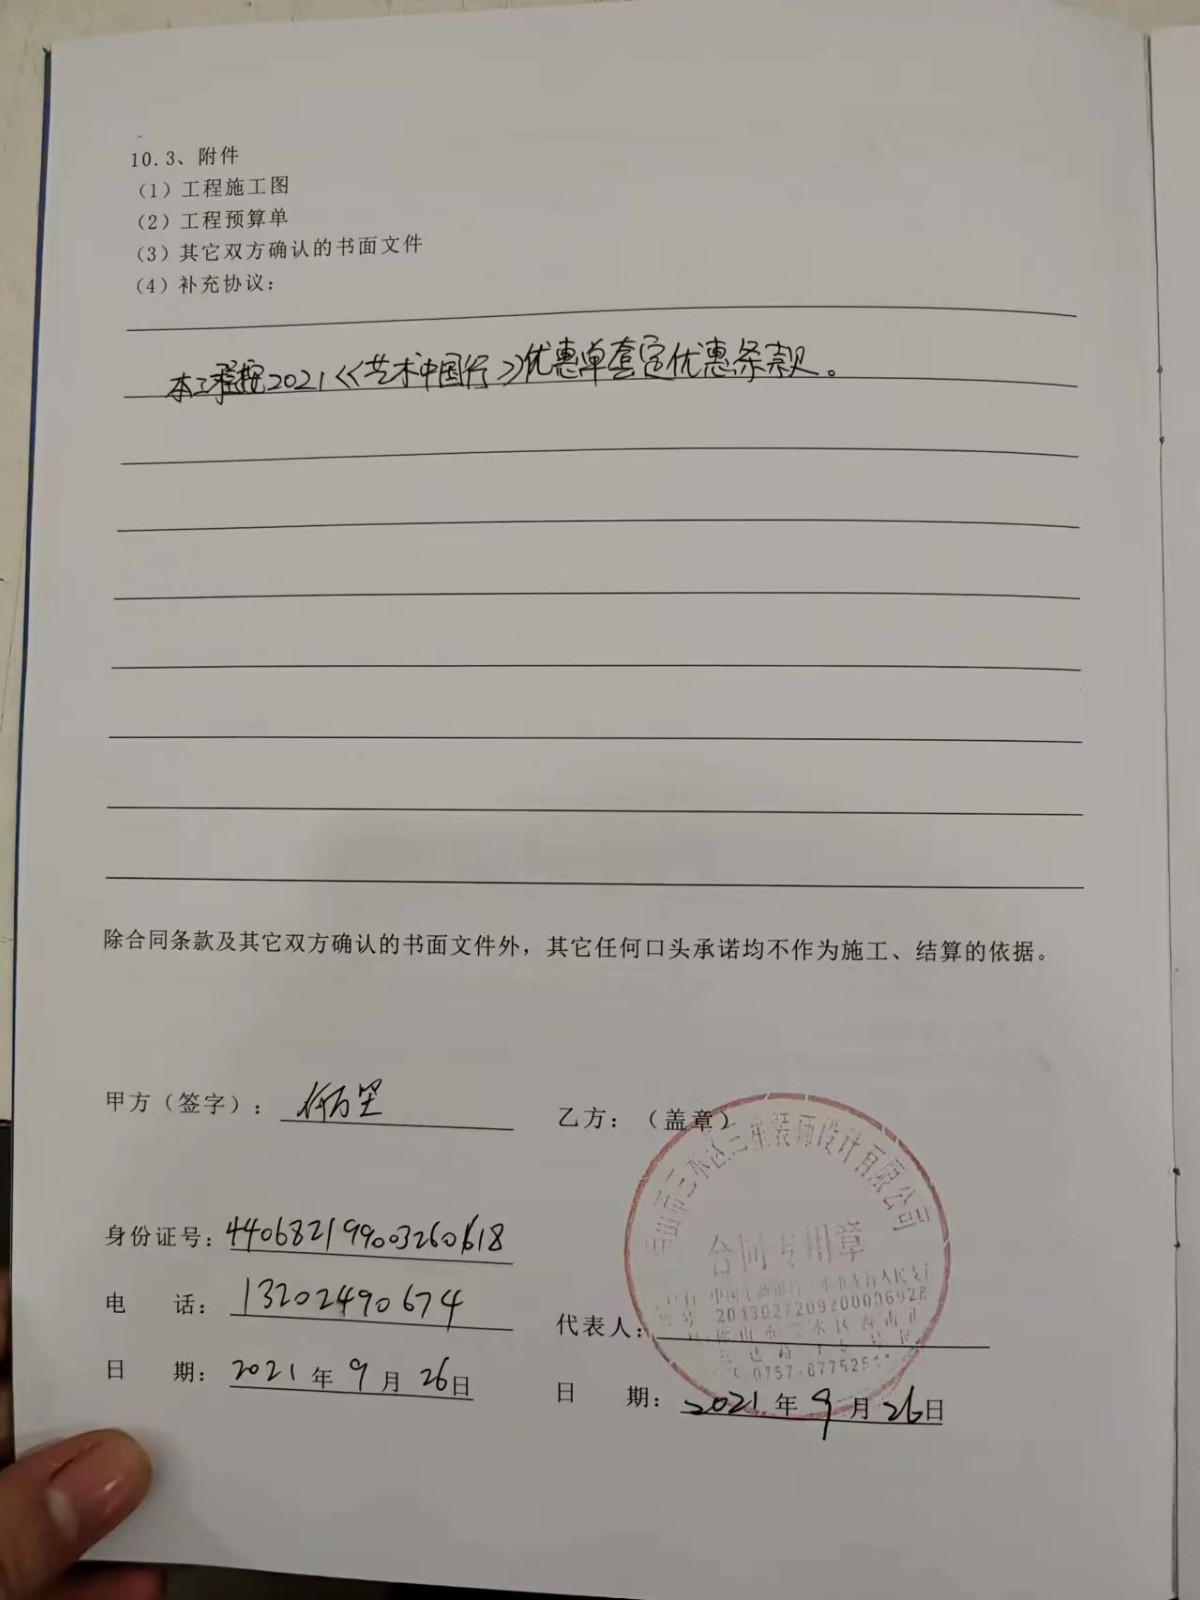 10.3、附件
(1)工程施工图
(2)工程预算单
(3)其它双方确认的书面文件
(4)补充协议：
本工程按2021《艺术中国行》优惠单套定优惠条款。
除合同条款及其它双方确认的书面文件外，其它任何口头承诺均不作为施工、结算的依据。
甲方（签字）：
乙方：（盖章）
市三水区三星装饰设计有限公司
合同专用章
2013027209200006928
0757-8775251
身份证号：440682199003260618
电 话：13202490674
代表人：
日 期：2021年9月26日
日 期：2021年9月26日